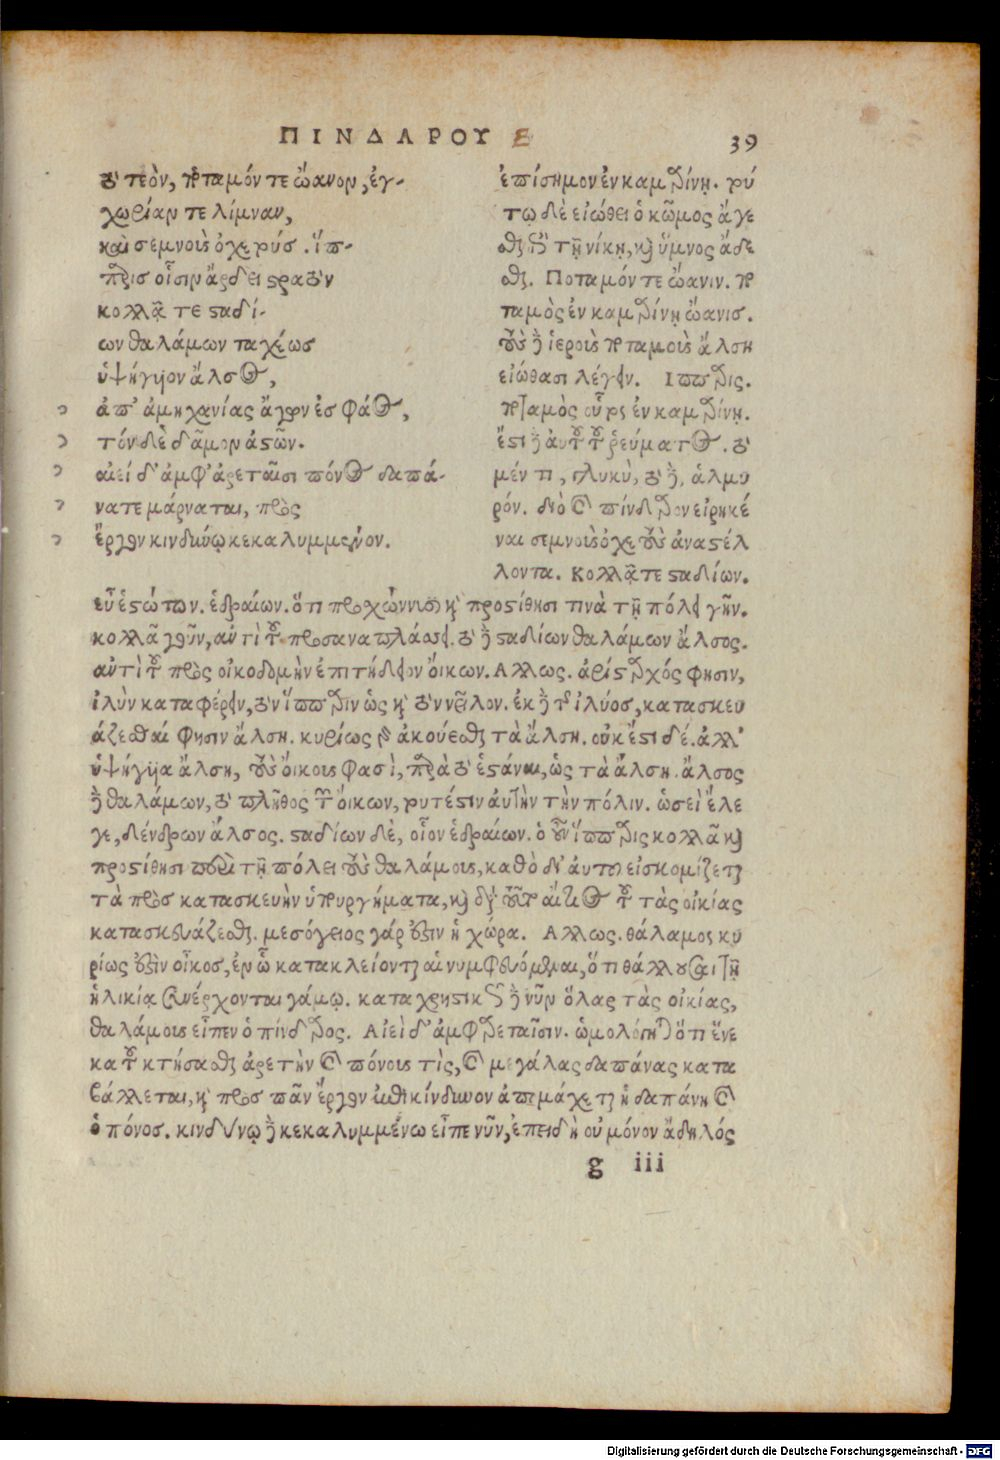 ΠΙΝΔΑΡΟΥ Ε 39
τὸ τεὸν, ποταμόν τε ὤανον, ἐγ-
χωρίαν τε λίμναν,
καὶ σεμνοὺς ὀχετούς. ἵπ-
παρις οἷσιν ἄρδει στρατὸν
κολλᾷ τε σταδί-
ων θαλάμων ταχέως
ὑψήγυιον ἄλσος,
ἀπ' ἀμηχανίας ἄγων ἐς φάος,
τόνδε δᾶμον ἀστῶν.
αἰεὶ δ' ἀμφ' ἀρεταῖσι πόνος δαπά-
να τε μάρναται, πρὸς
ἔργον κινδύνῳ κεκαλυμμένον.
ἐπίσημον ἐν καμαρίνῃ. ρύ
τῳ δὲ εἰώθει ὁ κῶμος ἄγε
σθαι τῇ νίκῃ, καὶ ὕμνος ἄδε
σθαι. Ποταμόν τε ὤανιν. πο
ταμὸς ἐν καμαρίνῃ ὤανις.
τοὺς δὲ ἱεροὺς ποταμοὺς ἄλση
εἰώθασι λέγειν. Ιππαρις.
ποταμὸς οὗτος ἐν καμαρίνῃ.
ἔστι δὲ αὐτοῦ τοῦ ῥεύματος. τὸ
μέν τι, γλυκὺ, τὸ δὲ, ἁλμυ
ρόν. διὸ καὶ πίνδαρον εἰρηκέ
ναι σεμνοὺς ὀχετοὺς ἀναστέλ
λοντα. Κολλᾷ τε σταδίων.
εὐεστώτων. ἑδραίων. ὅτι προχώννυσι καὶ προστίθησι τινὰ τῇ πόλει γῆν.
κολλᾷ γοῦν, αὐτὶ τοῦ προσαναπλάσσει. τὸ δὲ σταδίων θαλάμων ἄλσος.
αὐτὶ τοῦ πρὸς οἰκοδομὴν ἐπιτήδειον οἴκων. Αλλως. ἀρίσταρχός φησιν,
ἰλὺν καταφέρειν, τὸν ἵππαριν ὡς καὶ τὸν νεῖλον. ἐκ δὲ τῆς ἰλύος, κατασκευ
άζεσθαί φησιν ἄλση. κυρίως δὲ ἀκούεσθαι τὰ ἄλση. οὐκ ἔστι δέ. ἀλλ'
ὑψήγυια ἄλση, τοὺς οἴκους φασὶ, παρὰ τὸ ἑστάναι, ὡς τὰ ἄλση. ἄλσος
δὲ θαλάμων, τὸ πλῆθος τῶν οἴκων, τουτέστιν αὐτὴν τὴν πόλιν. ὡσεὶ ἔλε
γε, δένδρων ἄλσος. σταδίων δὲ, οἷον ἑδραίων. ὁ οὖν ἵππαρις κολλᾷ καὶ
προστίθησι πρὸς τῇ πόλει τοὺς θαλάμους, καθὸ δι' αὐτοῦ εἰσκομίζεται
τὰ πρὸς κατασκευὴν ὑπουργήματα, καὶ διὰ τοῦτο αἴτιος τοῦ τὰς οἰκίας
κατασκευάζεσθαι. μεσόγειος γάρ ἐστιν ἡ χώρα. Αλλως. θάλαμος κυ
ρίως ἐστὶν οἶκος, ἐν ᾧ κατακλείονται αἱ νυμφευόμεναι, ὅτι θάλλουσαι τῇ
ἡλικίᾳ συνέρχονται γάμῳ. καταχρηστικῶς δὲ νῦν ὅλας τὰς οἰκίας,
θαλάμους εἶπεν ὁ πίνδαρος. Αἰεὶ δ' ἀμφ' ἀρεταῖσιν. ὡμολόγηται ὅτι ἕνε
κα τοῦ κτήσασθαι ἀρετὴν καὶ πόνους τὶς, καὶ μεγάλας δαπάνας κατα
βάλλεται, καὶ πρὸς πᾶν ἔργον ἐπικίνδυνον ἀπομάχεται ἡ δαπάνη καὶ
ὁ πόνος. κινδύνῳ δὲ κεκαλυμμένῳ εἶπε νῦν, ἐπειδὴ οὐ μόνον ἄδηλός
g iii
Digitalisierung gefördert durch die Deutsche Forschungsgemeinschaft - DFG